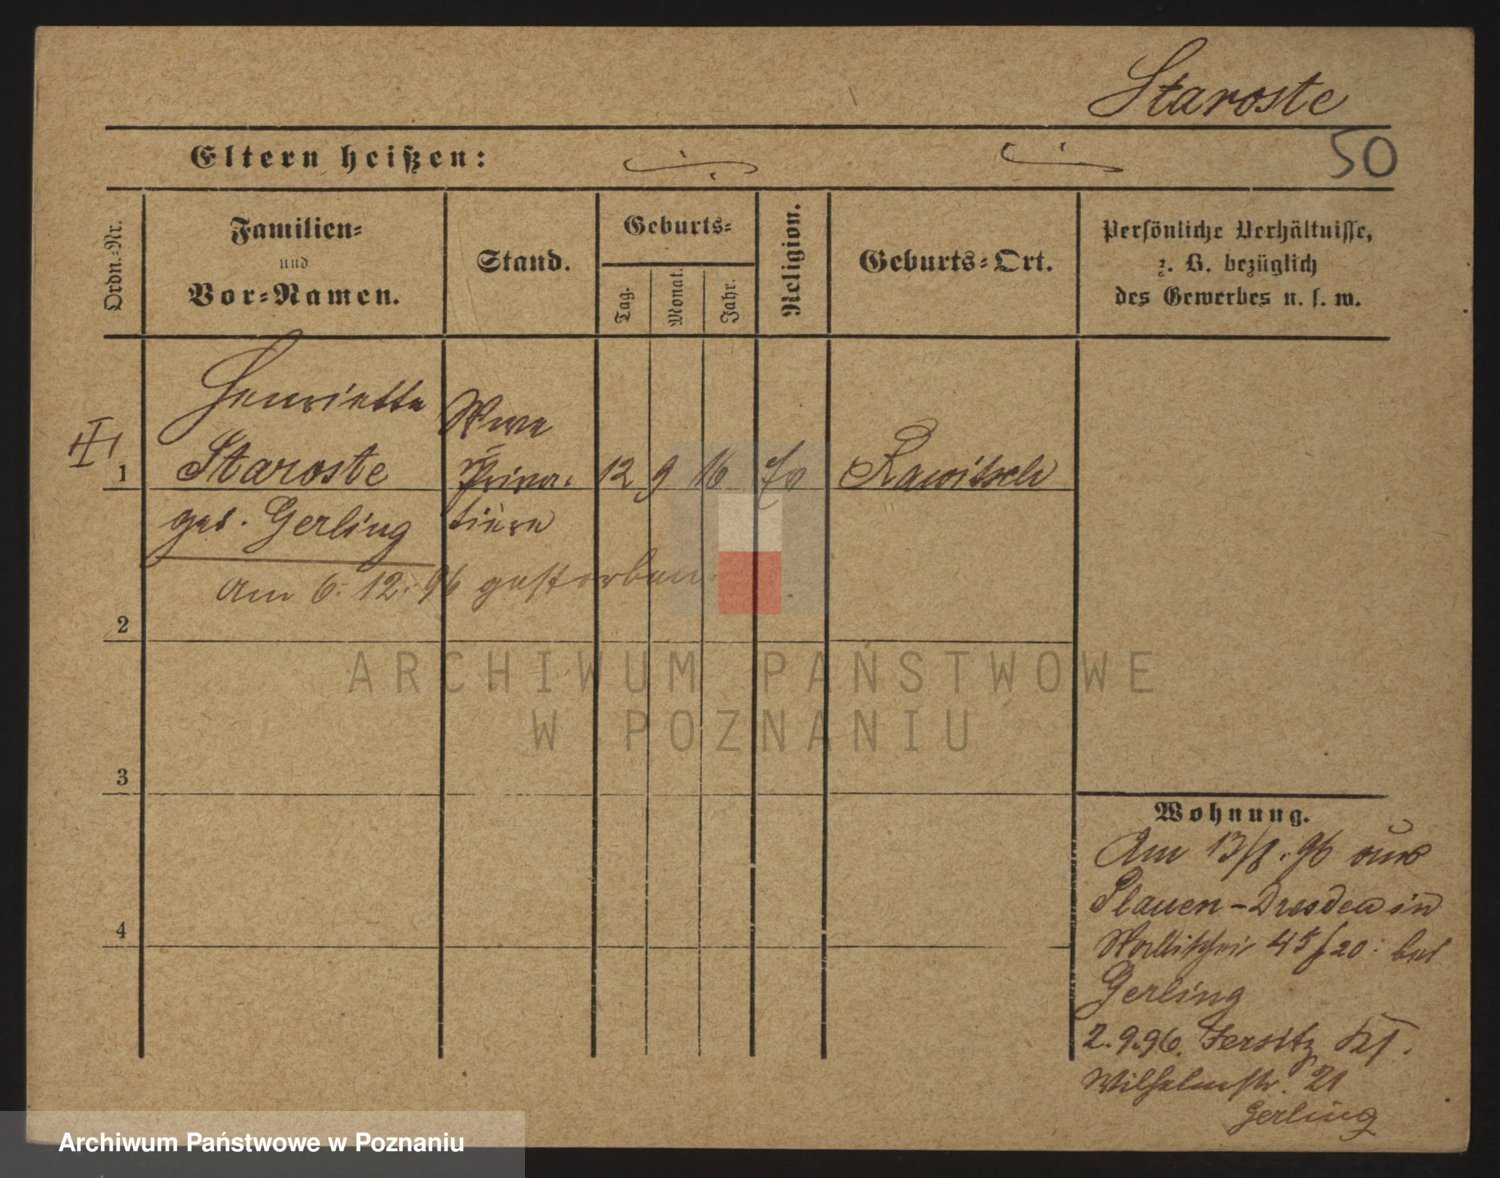 Staroste
50
Eltern heißen:
Ordn.-Nr.
Familien-
und
Vor-Namen.
Stand.
Geburts-
Tag.
Monat.
Jahr.
Religion.
Geburts-Ort.
Persönliche Verhältnisse,
z. B. bezüglich
des Gewerbes u. s. w.
Henriette
Staroste
geb. Gerling
Wwe
Priva-
tière
1
12 9 16 Ev Rawitsch
am 6. 12. 96 gestorben.
2
3
4
ARCHIWUM PAŃSTWOWE
W POZNANIU
Wohnung.
Am 13/8. 96 aus
Plauen-Dresden in
45/20. bei
Gerling
2.9.96. Jersitz
Wilhelmstr. 21
Gerling
Archiwum Państwowe w Poznaniu